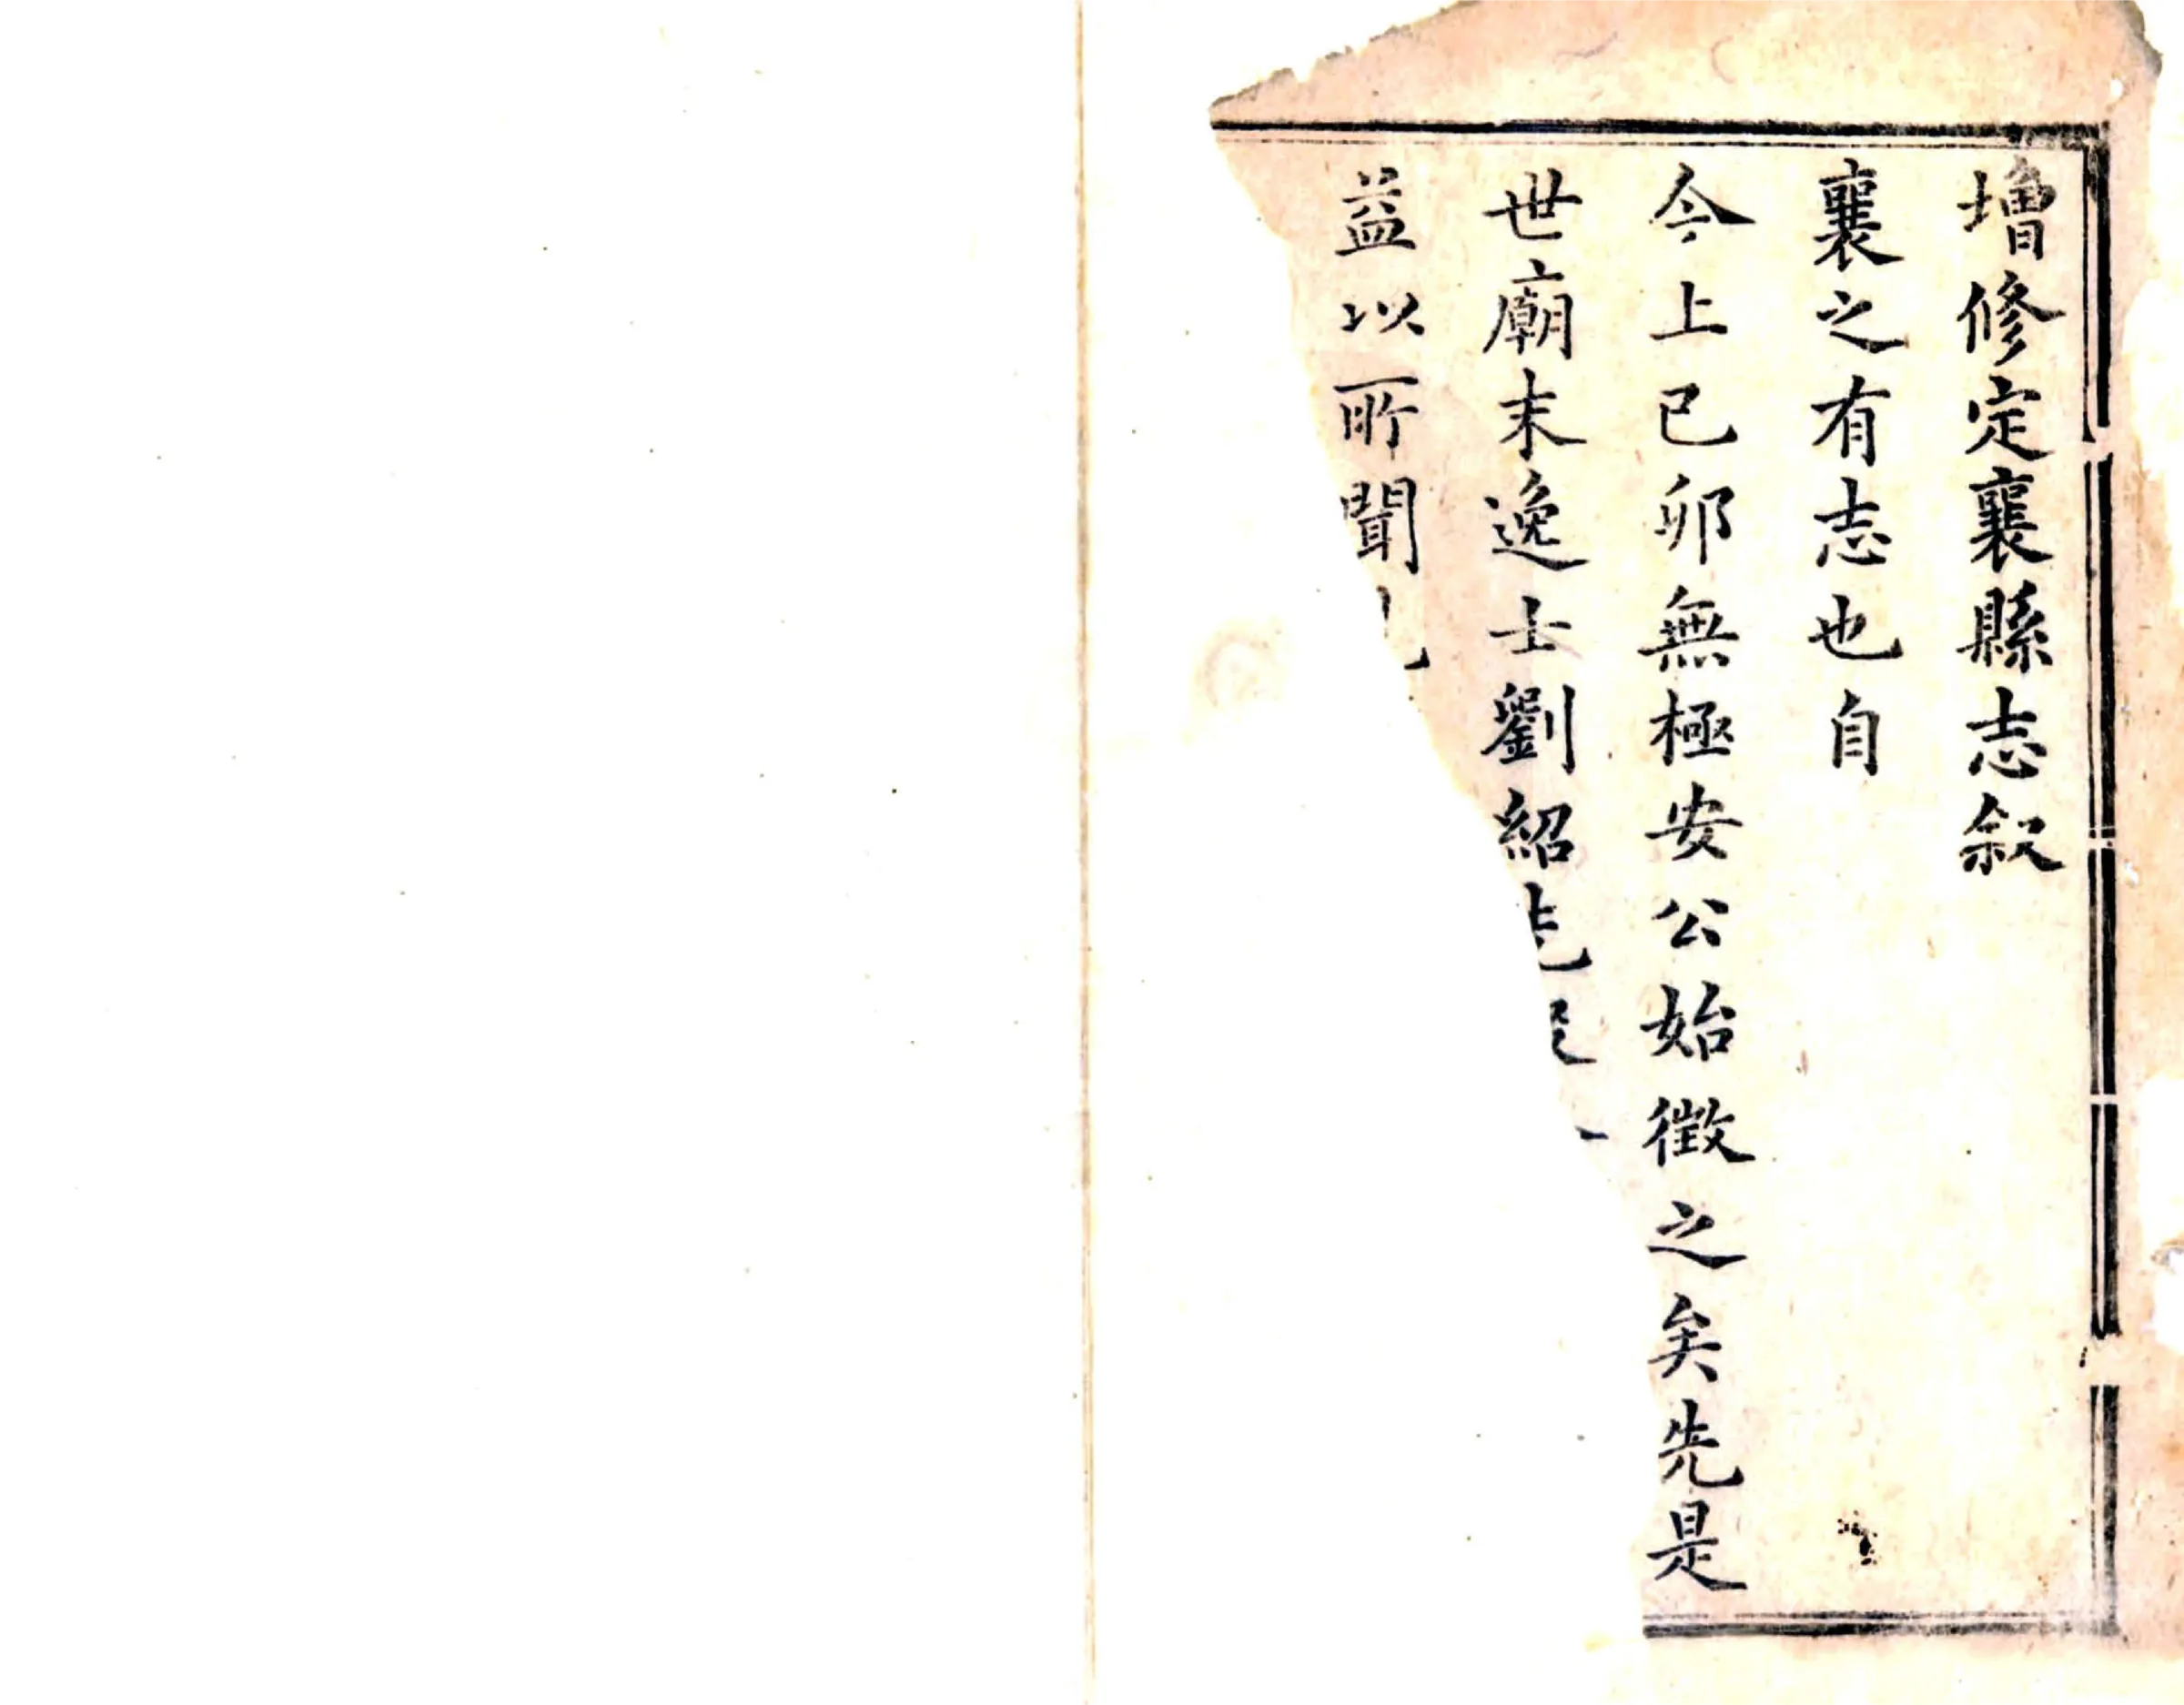 增修定襄縣志叙
襄之有志也自
今上己卯無極安公始徵之矣先是
世廟末逸士劉紹先
益以所聞見